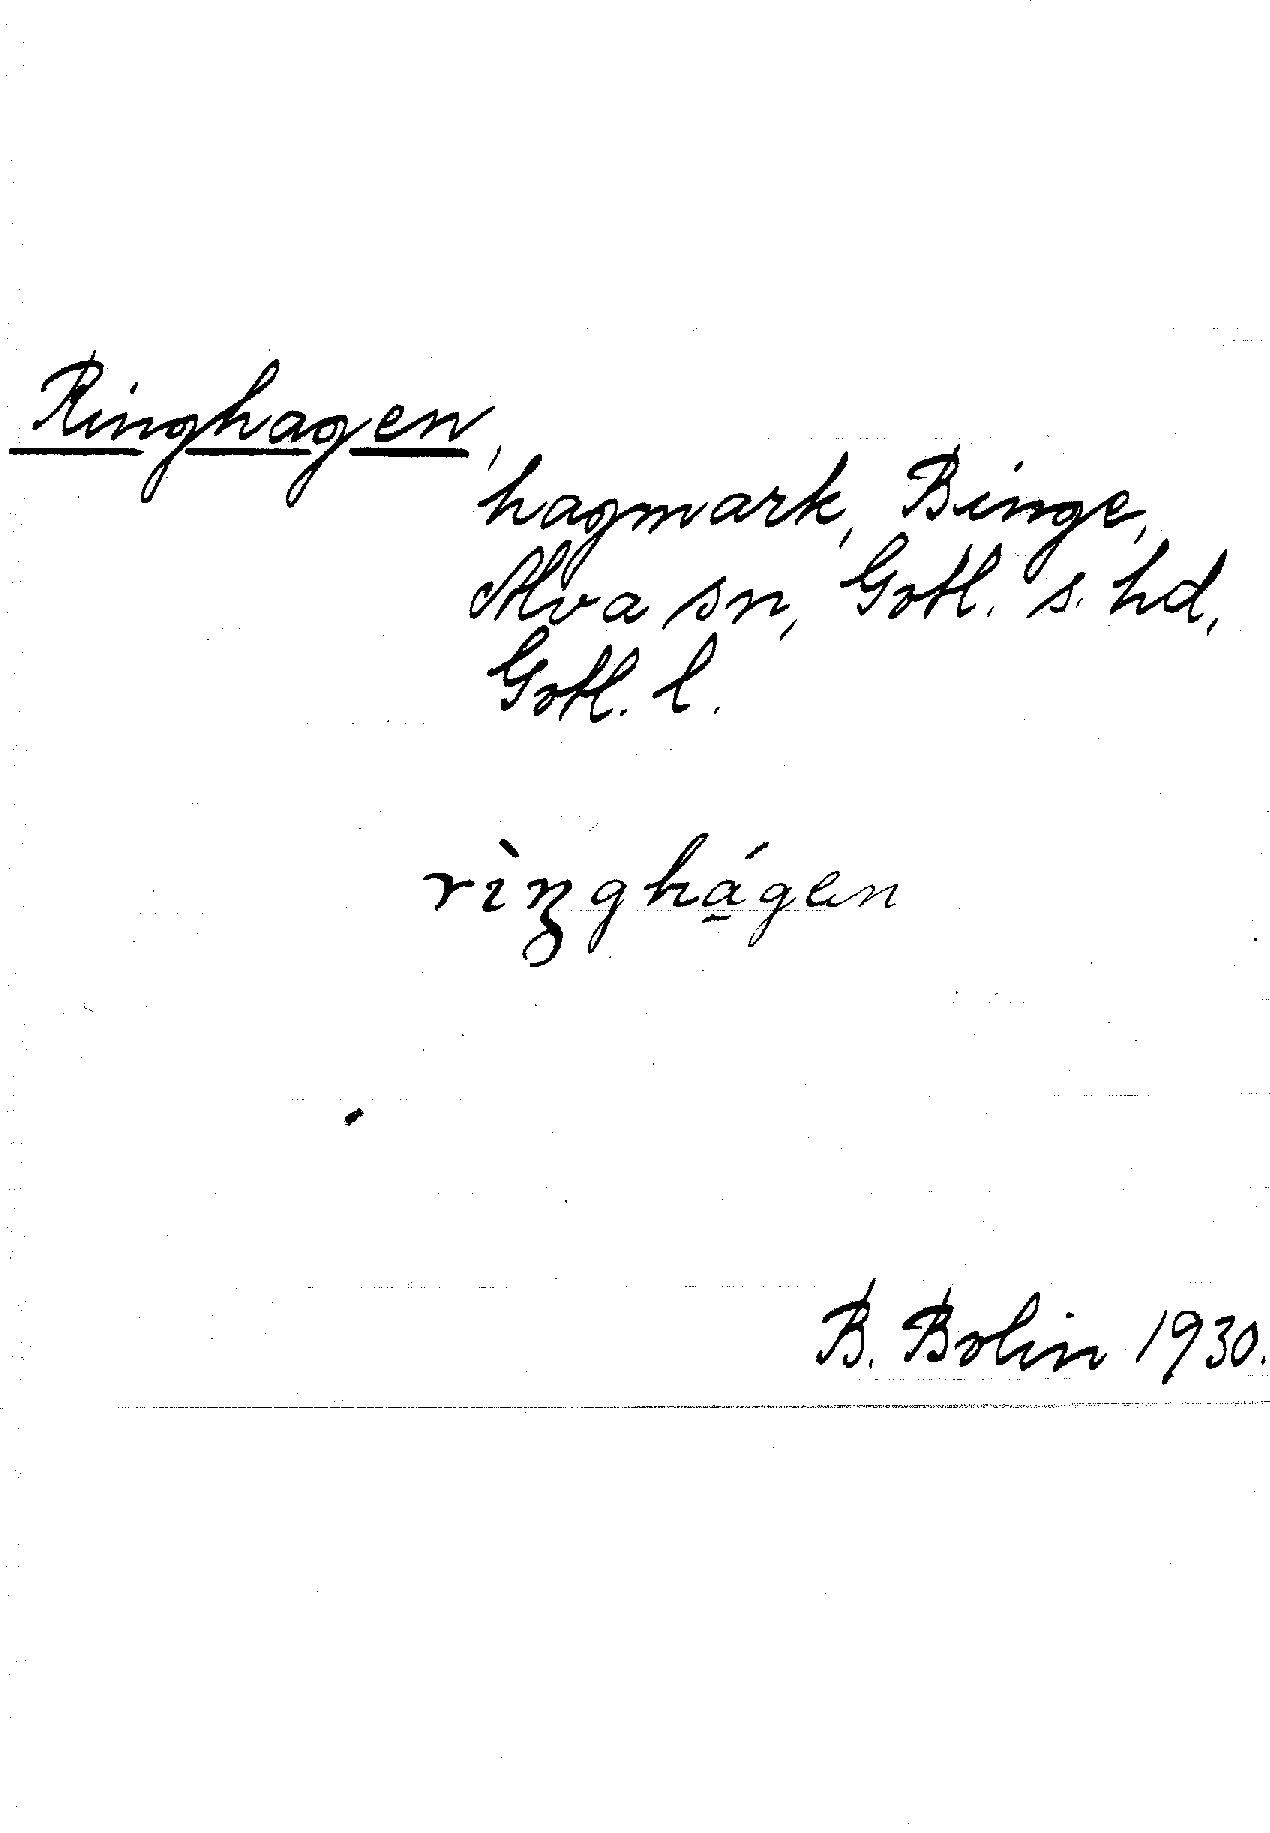 Ringhagen,
hagmark, Binge,
Alva sn, Gotl. s. hd,
Gotl. l.
rìŋghá̱gen
B. Bolin 1930.